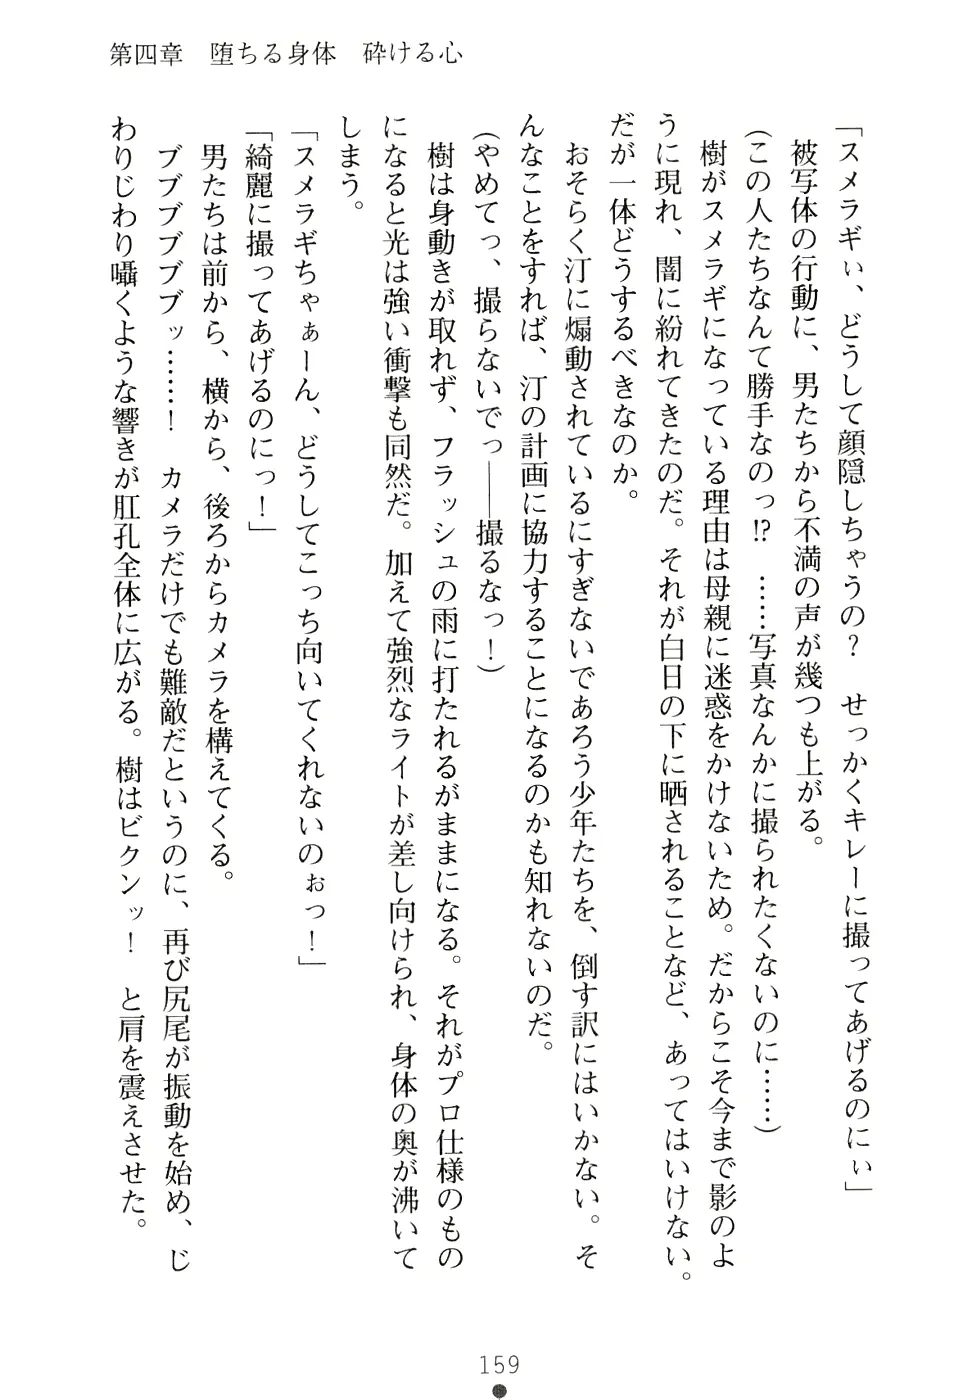 第四章　堕ちる身体　砕ける心
「スメラギぃ、どうして顔隠しちゃうの？　せっかくキレーに撮ってあげるのにぃ」
被写体の行動に、男たちから不満の声が幾つも上がる。
（この人たちなんて勝手なのっ⁉　……写真なんかに撮られたくないのに……）
樹がスメラギになっている理由は母親に迷惑をかけないため。だからこそ今まで影のよ
うに現れ、闇に紛れてきたのだ。それが白日の下に晒されることなど、あってはいけない。
だが一体どうするべきなのか。
おそらく汀に煽動されているにすぎないであろう少年たちを、倒す訳にはいかない。そ
んなことをすれば、汀の計画に協力することになるのかも知れないのだ。
（やめてっ、撮らないでっ――撮るなっ！）
樹は身動きが取れず、フラッシュの雨に打たれるがままになる。それがプロ仕様のもの
になると光は強い衝撃も同然だ。加えて強烈なライトが差し向けられ、身体の奥が沸いて
しまう。
「スメラギちゃぁーん、どうしてこっち向いてくれないのぉっ！」
「綺麗に撮ってあげるのにっ！」
男たちは前から、横から、後ろからカメラを構えてくる。
ブブブブブッ……！　カメラだけでも難敵だというのに、再び尻尾が振動を始め、じ
わりじわり囁くような響きが肛孔全体に広がる。樹はビクンッ！　と肩を震えさせた。
159